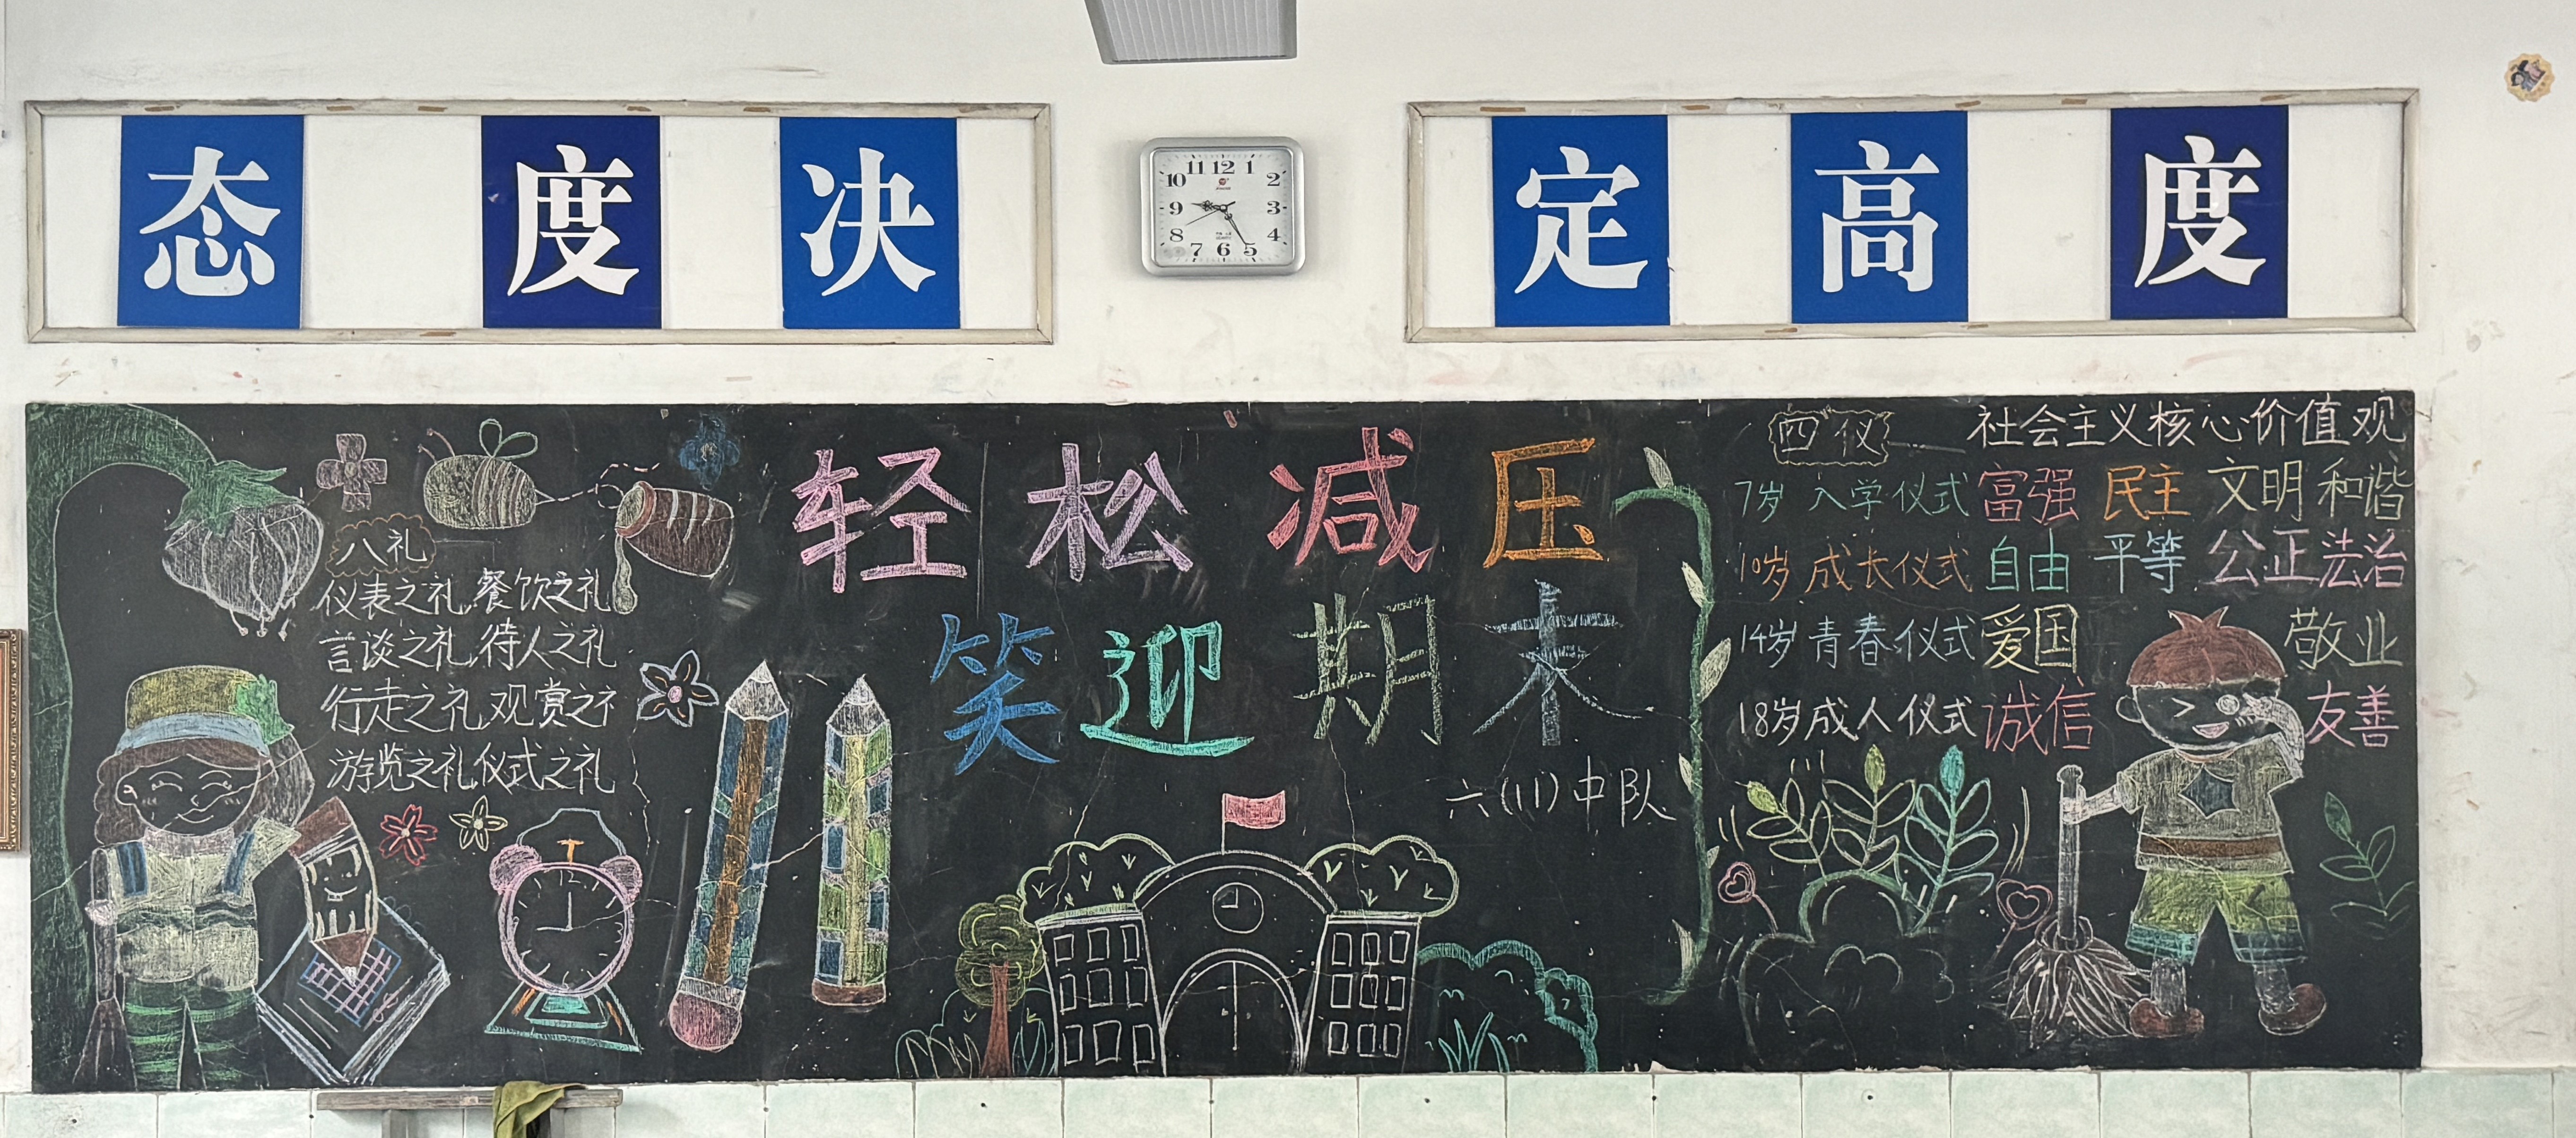 态度决
定高度
11 12 1
10 2
9 3
8 4
7 6 5
轻松减压
笑迎期末
六(11)中队
八礼
仪表之礼 餐饮之礼
言谈之礼 待人之礼
行走之礼 观赏之礻
游览之礼 仪式之礼
四仪
7岁 入学仪式
10岁 成长仪式
14岁 青春仪式
18岁 成人仪式
社会主义核心价值观
富强 民主 文明 和谐
自由 平等 公正 法治
爱国 敬业
诚信 友善